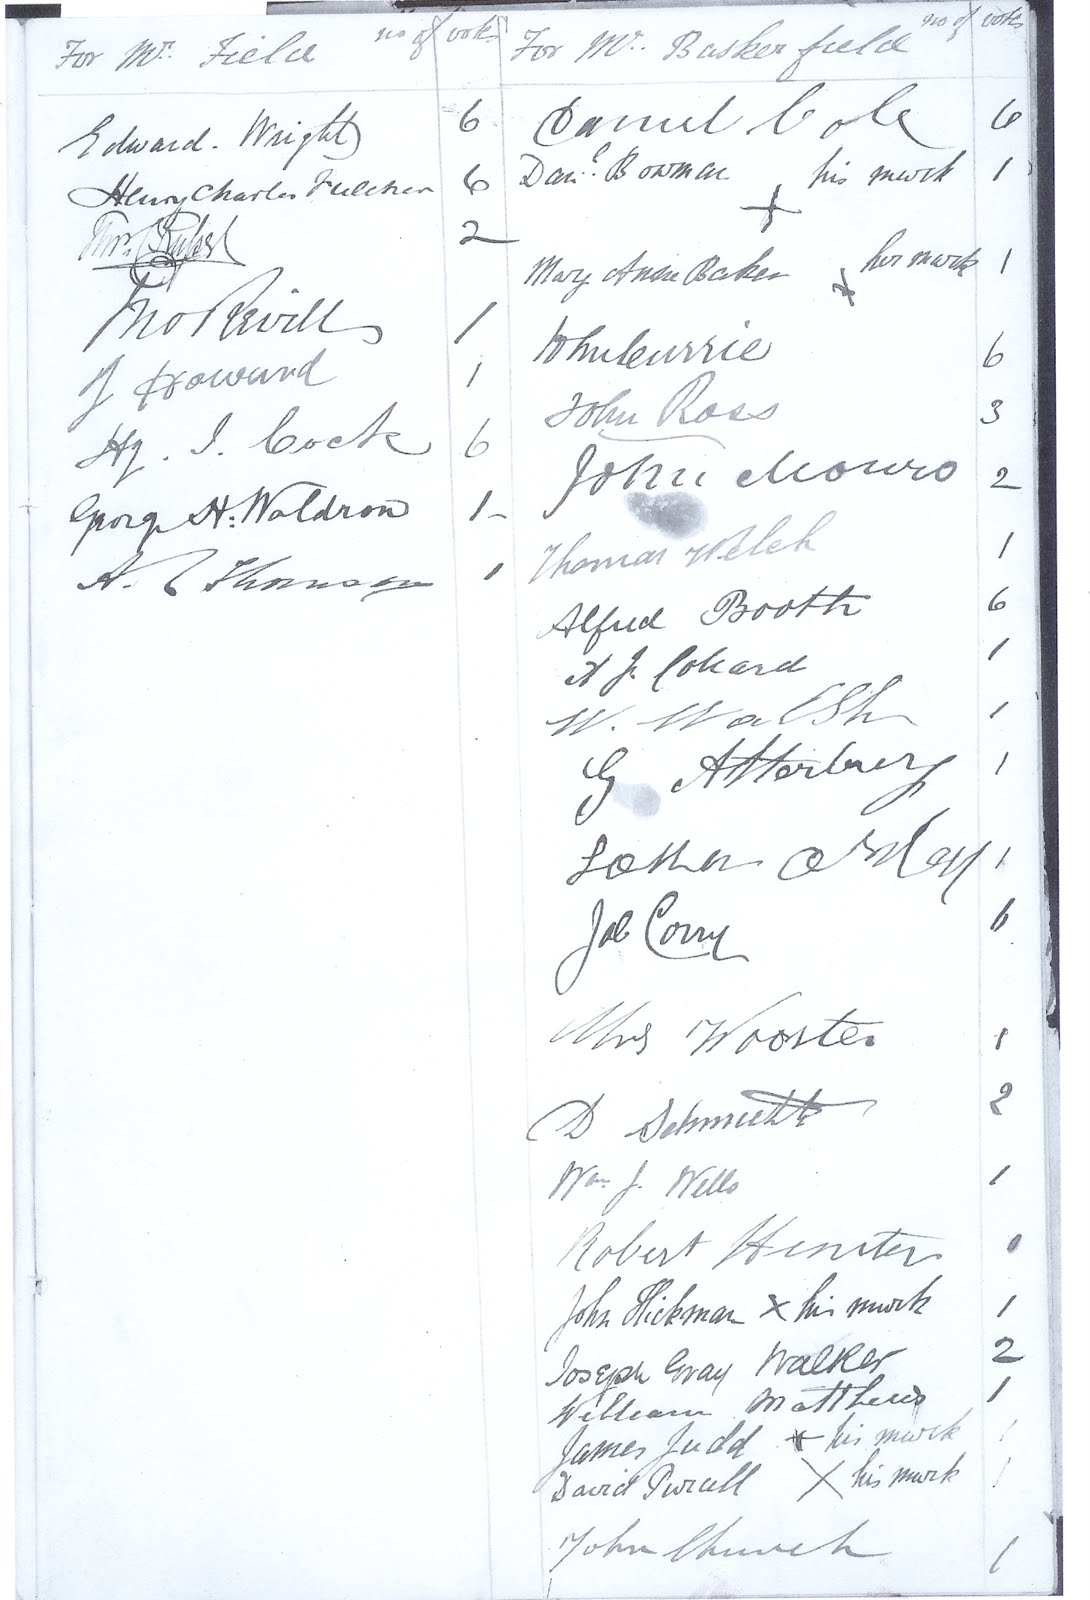 For Mr. Field no of votes
Edward. Wright 6
Henry Charles Fulcher 6
Thos 2
Tho Revill 1
J Howard 1
Hy. J. Cock 6
George H. Waldron 1
A. Thomson 1
For Mr. Baskerfield no of votes
Daniel Cole 6
Danl. Bowman his mark 1
X
Mary Anne Baker X her mark 1
John Currie 6
John Ross 3
John Monro 2
Thomas Welch 1
Alfred Booth 6
J. 1
W. Walsh 1
G Atterbury 1
1
Job Corry
Mrs Wooster 1
D Schmidt 2
Wm J. Wells 1
Robert Hunter
John Hickman X his mark 1
Joseph Gray Walker 2
William Matthews 1
James Judd X his mark 1
David Purcell X his mark 1
John Church 1